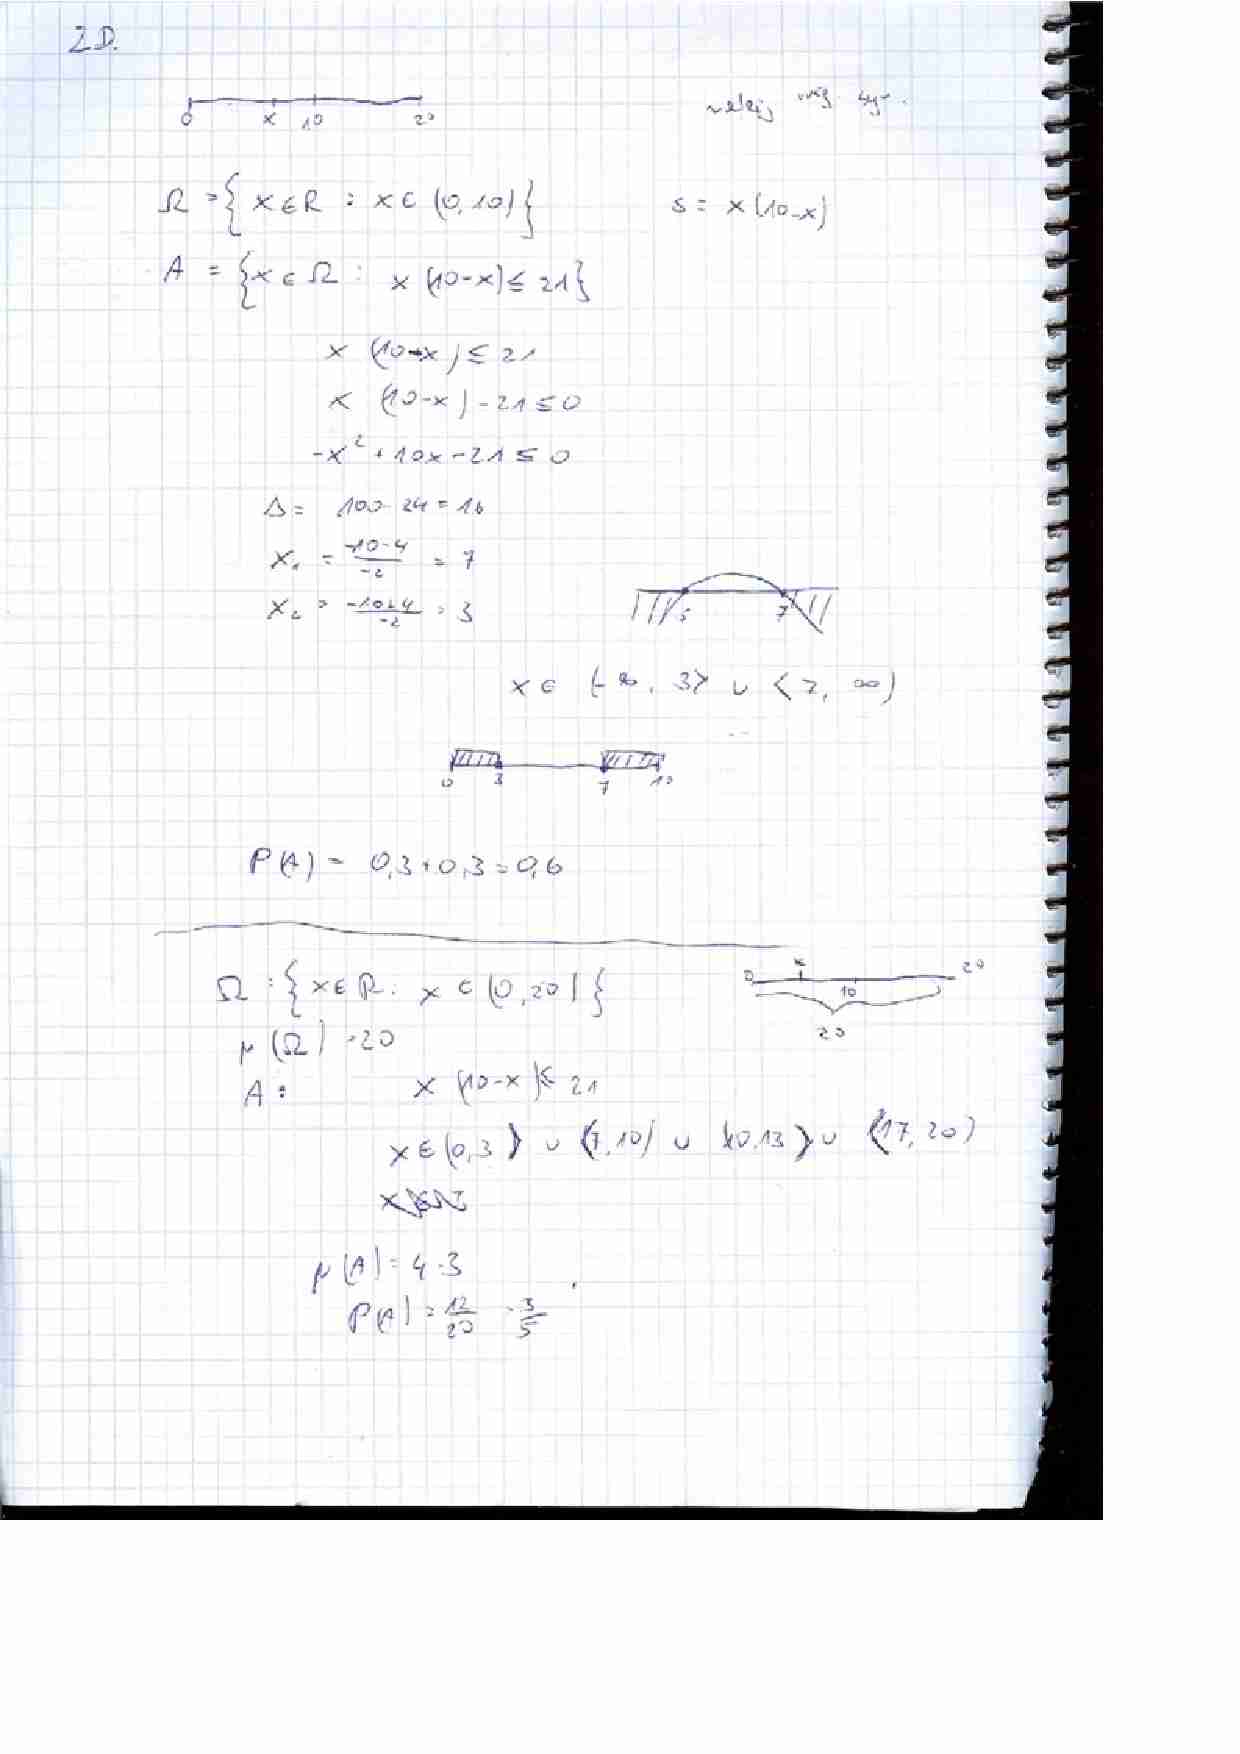 2D.
0 x 10 20
Ω = { x ∈ R : x ∈ (0, 10) } s = x(10-x)
A = { x ∈ Ω : x (10-x) ≤ 21 }
x (10-x) ≤ 21
x (10-x) - 21 ≤ 0
-x² + 10x - 21 ≤ 0
Δ = 100 - 84 = 16
x₁ = -10-4 / -2 = 7
x₂ = -10+4 / -2 = 3
7
x ∈ (-∞, 3> ∪ <7, ∞)
0 3 7 10
P(A) = 0,3 + 0,3 = 0,6
Ω = { x ∈ R : x ∈ (0, 20) } 0 x 10 20
20
μ(Ω) = 20
A : x (10-x) ≤ 21
x ∈ (0,3> ∪ <7,10) ∪ (10,13> ∪ <17,20)
μ(A) = 4·3
P(A) = 12/20 = 3/5